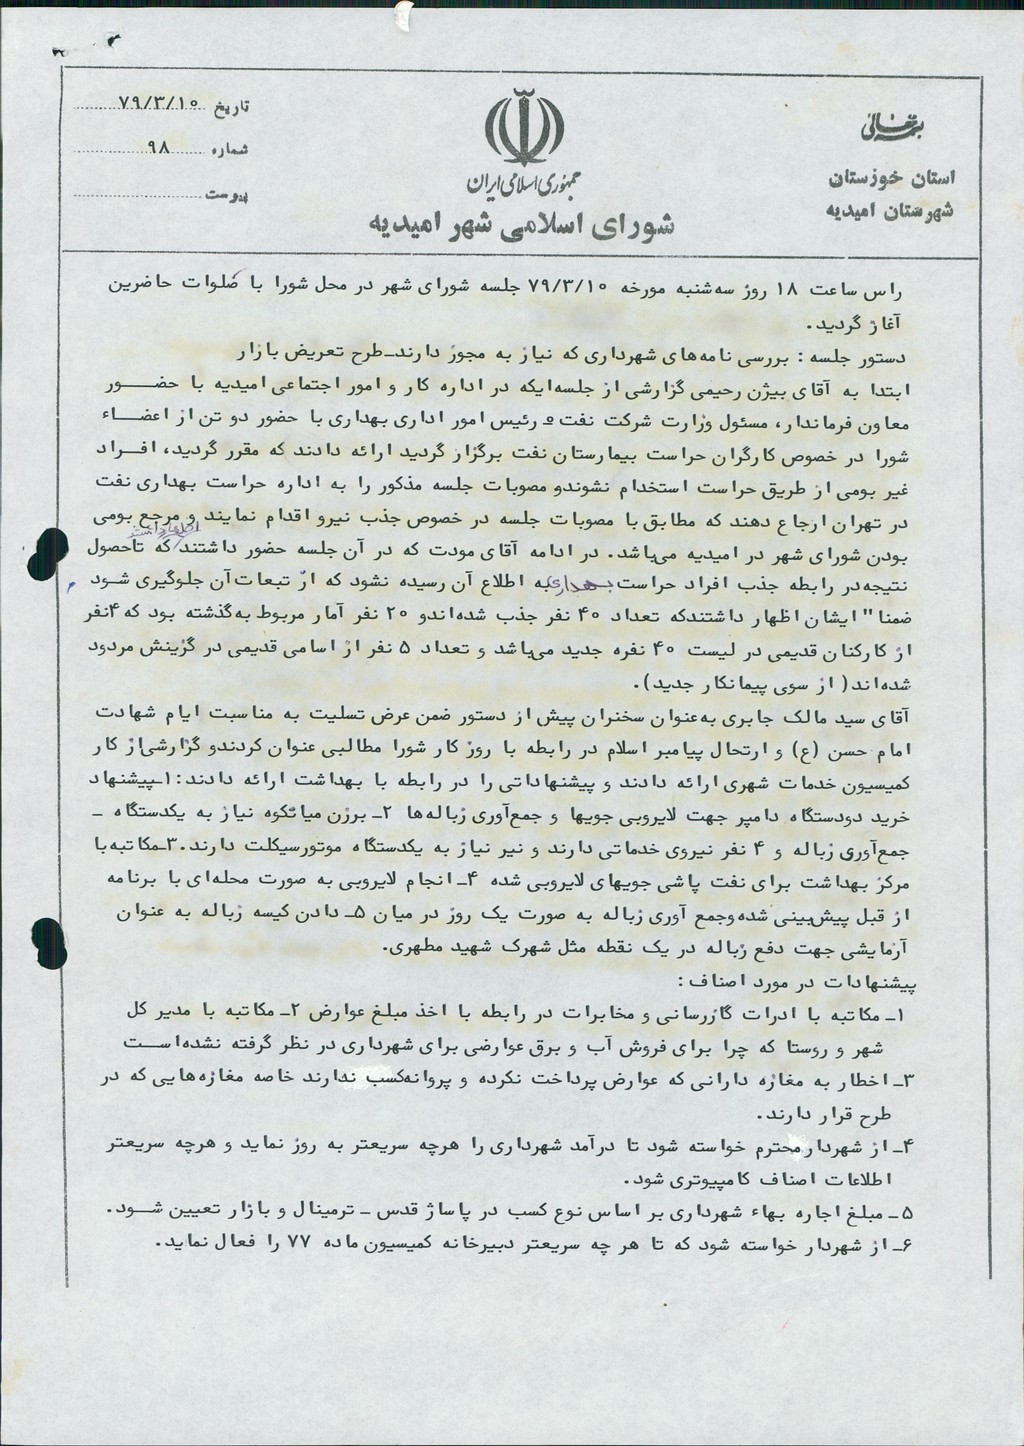 بسمه تعالی
استان خوزستان
شهرستان امیدیه
جمهوری اسلامی ایران
شورای اسلامی شهر امیدیه
تاریخ ۷۹/۳/۱۰
شماره ۹۸
پیوست
راس ساعت ۱۸ روز سه‌شنبه مورخه ۷۹/۳/۱۰ جلسه شورای شهر در محل شورا با صلوات حاضرین
آغاز گردید.
دستور جلسه : بررسی نامه‌های شهرداری که نیاز به مجوز دارند-طرح تعریض بازار
ابتدا به آقای بیژن رحیمی گزارشی از جلسه‌ایکه در اداره کار و امور اجتماعی امیدیه با حضور
معاون فرماندار، مسئول وزارت شرکت نفت و رئیس امور اداری بهداری با حضور دو تن از اعضاء
شورا در خصوص کارگران حراست بیمارستان نفت برگزار گردید ارائه دادند که مقرر گردید، افراد
غیر بومی از طریق حراست استخدام نشوندو مصوبات جلسه مذکور را به اداره حراست بهداری نفت
در تهران ارجاع دهند که مطابق با مصوبات جلسه در خصوص جذب نیرو اقدام نمایند و مرجع بومی
بودن شورای شهر در امیدیه می‌باشد. در ادامه آقای مودت که در آن جلسه حضور داشتند اظهار داشتند که تاحصول
نتیجه‌در رابطه جذب افراد حراست بهداری به اطلاع آن رسیده نشود که از تبعات آن جلوگیری شود
ضمنا" ایشان اظهار داشتندکه تعداد ۴۰ نفر جذب شده‌اندو ۲۰ نفر آمار مربوط به‌گذشته بود که ۴نفر
از کارکنان قدیمی در لیست ۴۰ نفره جدید می‌باشد و تعداد ۵ نفر از اسامی قدیمی در گزینش مردود
شده‌اند( از سوی پیمانکار جدید).
آقای سید مالک جابری به‌عنوان سخنران پیش از دستور ضمن عرض تسلیت به مناسبت ایام شهادت
امام حسن (ع) و ارتحال پیامبر اسلام در رابطه با روز کار شورا مطالبی عنوان کردندو گزارشی‌از کار
کمیسیون خدمات شهری ارائه دادند و پیشنهاداتی را در رابطه با بهداشت ارائه دادند: ۱-پیشنهاد
خرید دودستگاه دامپر جهت لایروبی جویها و جمع‌آوری زباله‌ها ۲- برزن میانکوه نیاز به یکدستگاه -
جمع‌آوری زباله و ۴ نفر نیروی خدماتی دارند و نیر نیاز به یکدستگاه موتورسیکلت دارند.۳-مکاتبه‌با
مرکز بهداشت برای نفت پاشی جویهای لایروبی شده ۴- انجام لایروبی به صورت محله‌ای با برنامه
از قبل پیش‌بینی شده‌وجمع آوری زباله به صورت یک روز در میان ۵- دادن کیسه زباله به عنوان
آزمایشی جهت دفع زباله در یک نقطه مثل شهرک شهید مطهری.
پیشنهادات در مورد اصناف :
۱- مکاتبه با ادرات گازرسانی و مخابرات در رابطه با اخذ مبلغ عوارض ۲- مکاتبه با مدیر کل
شهر و روستا که چرا برای فروش آب و برق عوارضی برای شهرداری در نظر گرفته نشده‌است
۳- اخطار به مغازه دارانی که عوارض پرداخت نکرده و پروانه‌کسب ندارند خاصه مغازه‌هایی که در
طرح قرار دارند.
۴- از شهردار محترم خواسته شود تا درآمد شهرداری را هرچه سریعتر به روز نماید و هرچه سریعتر
اطلاعات اصناف کامپیوتری شود.
۵- مبلغ اجاره بهاء شهرداری بر اساس نوع کسب در پاساژ قدس - ترمینال و بازار تعیین شود.
۶- از شهردار خواسته شود که تا هر چه سریعتر دبیرخانه کمیسیون ماده ۷۷ را فعال نماید.